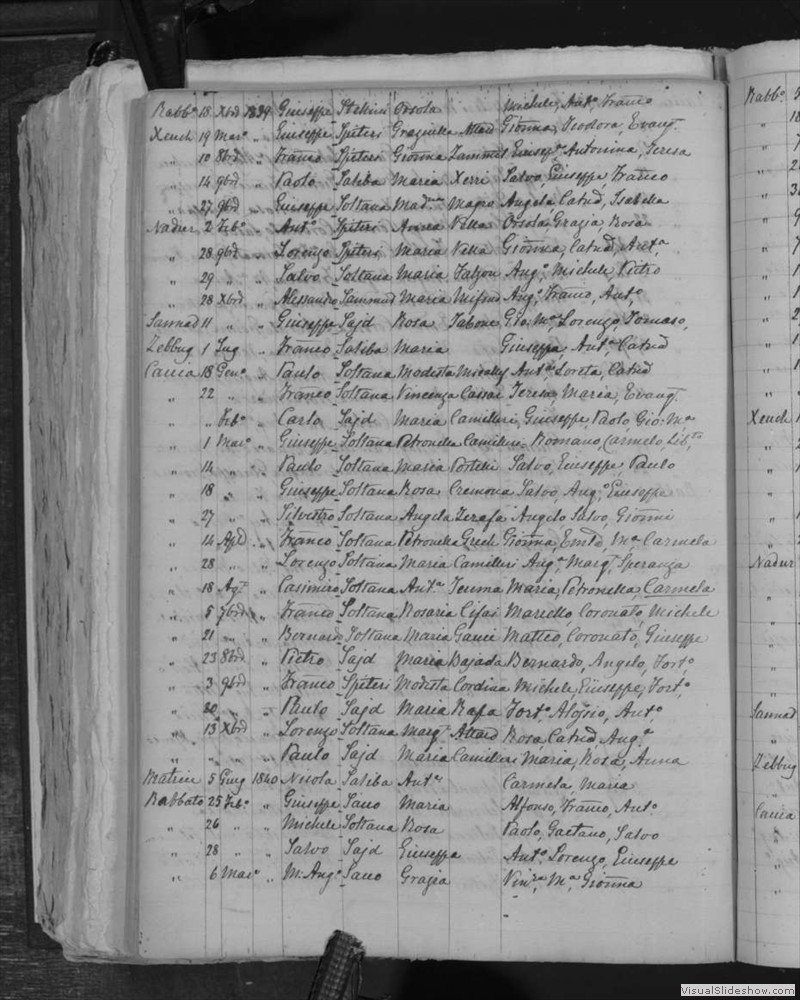 Rabb.o 18 Xbre 1839 Giuseppe Stellini Orsola Michele, Ant.o, Franco
Xeuch 19 Mar.o " Giuseppe Spiteri Graziella Attard Gionna, Teodora, Evang.
" 10 8bre " Franco Spiteri Gionna Zammit Giusep.a Antonina, Teresa
" 14 9bre " Paolo Saliba Maria Xerri Salvo, Giuseppe, Franco
" 27 9bre " Giuseppe Soltana Mad.na Magro Angela, Catud, Isabella
Nadur 2 Feb.o " Ant.o Speteri Anrea Vella Orsola, Grazia, Rosa
" 28 9bre " Lorenzo Spiteri Maria Vella Gionna, Catud,
" 29 " " Salvo Soltana Maria Falzon Ang.o, Michele, Pietro
" 28 Xbre " Alessandro Sammud Maria Mifsud Ang.o, Franco, Ant.o
Sannad 11 " " Giuseppe Sajd Rosa Tabone Gio. M.a, Lorenzo, Tomaso,
Zebbug 1 Lug " Franco Saliba Maria Giuseppa, Ant.a, Catud
Caccia 18 Gen.o " Paulo Soltana Modesta Micallef Ant.a, Loreta, Catud
" 22 " " Franco Soltana Vincenza Cassar Teresa, Maria, Evang.
" " Feb.o " Carlo Sajd Maria Camilleri, Giuseppe, Paolo, Gio. M.a
" 1 Mar.o " Giuseppe Soltana Petronella Camilleri Romano, Carmelo, Lib.to
" 14 " " Paulo Soltana Maria Portelli Salvo, Giuseppe, Paulo
" 18 " " Giuseppe Soltana Rosa Cremona Salvo, Ang.o, Giuseppe
" 27 " " Silvestro Soltana Angela Zerafa Angelo, Salvo, Gionni
" 14 Apl " Franco Soltana Petronella Grech Gionna, M.a Carmela
" 28 " " Lorenzo Soltana Maria Camilleri Ang.a, Marg., Speranza
" 18 Agt " Casimiro Soltana Ant.a Teuma Maria, Petronella, Carmela
" 5 7bre " Franco Soltana Rosaria Cefai Mariello, Coronato, Michele
" 21 " " Bernardo Soltana Maria Gauci Matteo, Coronato, Giuseppe
" 23 8bre " Pietro Sajd Maria Bajada Bernardo, Angelo, Fort.o
" 3 9bre " Franco Speteri Modesta Cordina Michele, Giuseppe, Fort.o
" 20 " " Paulo Sajd Maria Rapa Fort.o, Aloysio, Ant.o
" 13 Xbre " Lorenzo Soltana Marg. Attard Rosa, Catud, Aug.a
" " " " Paulo Sajd Maria Camilleri Maria, Rosa, Anna
5 Giug 1840 Nicola Saliba Ant.a Carmela, Maria
Rabbato 25 Feb.o " Giuseppe Sano Maria Alfonso, Franco, Ant.o
" 26 " " Michele Soltana Rosa Paolo, Gaetano, Salvo
" 28 " " Salvo Sajd Giuseppa Ant.o, Lorenzo, Giuseppe
" 6 Mar.o " M. Ang.o Sano Grazia Vin.za, M.a, Gionna
Rabb.o
Xeuch
Nadur
Sannad
Zebbug
Caccia
VisualSlideshow.com